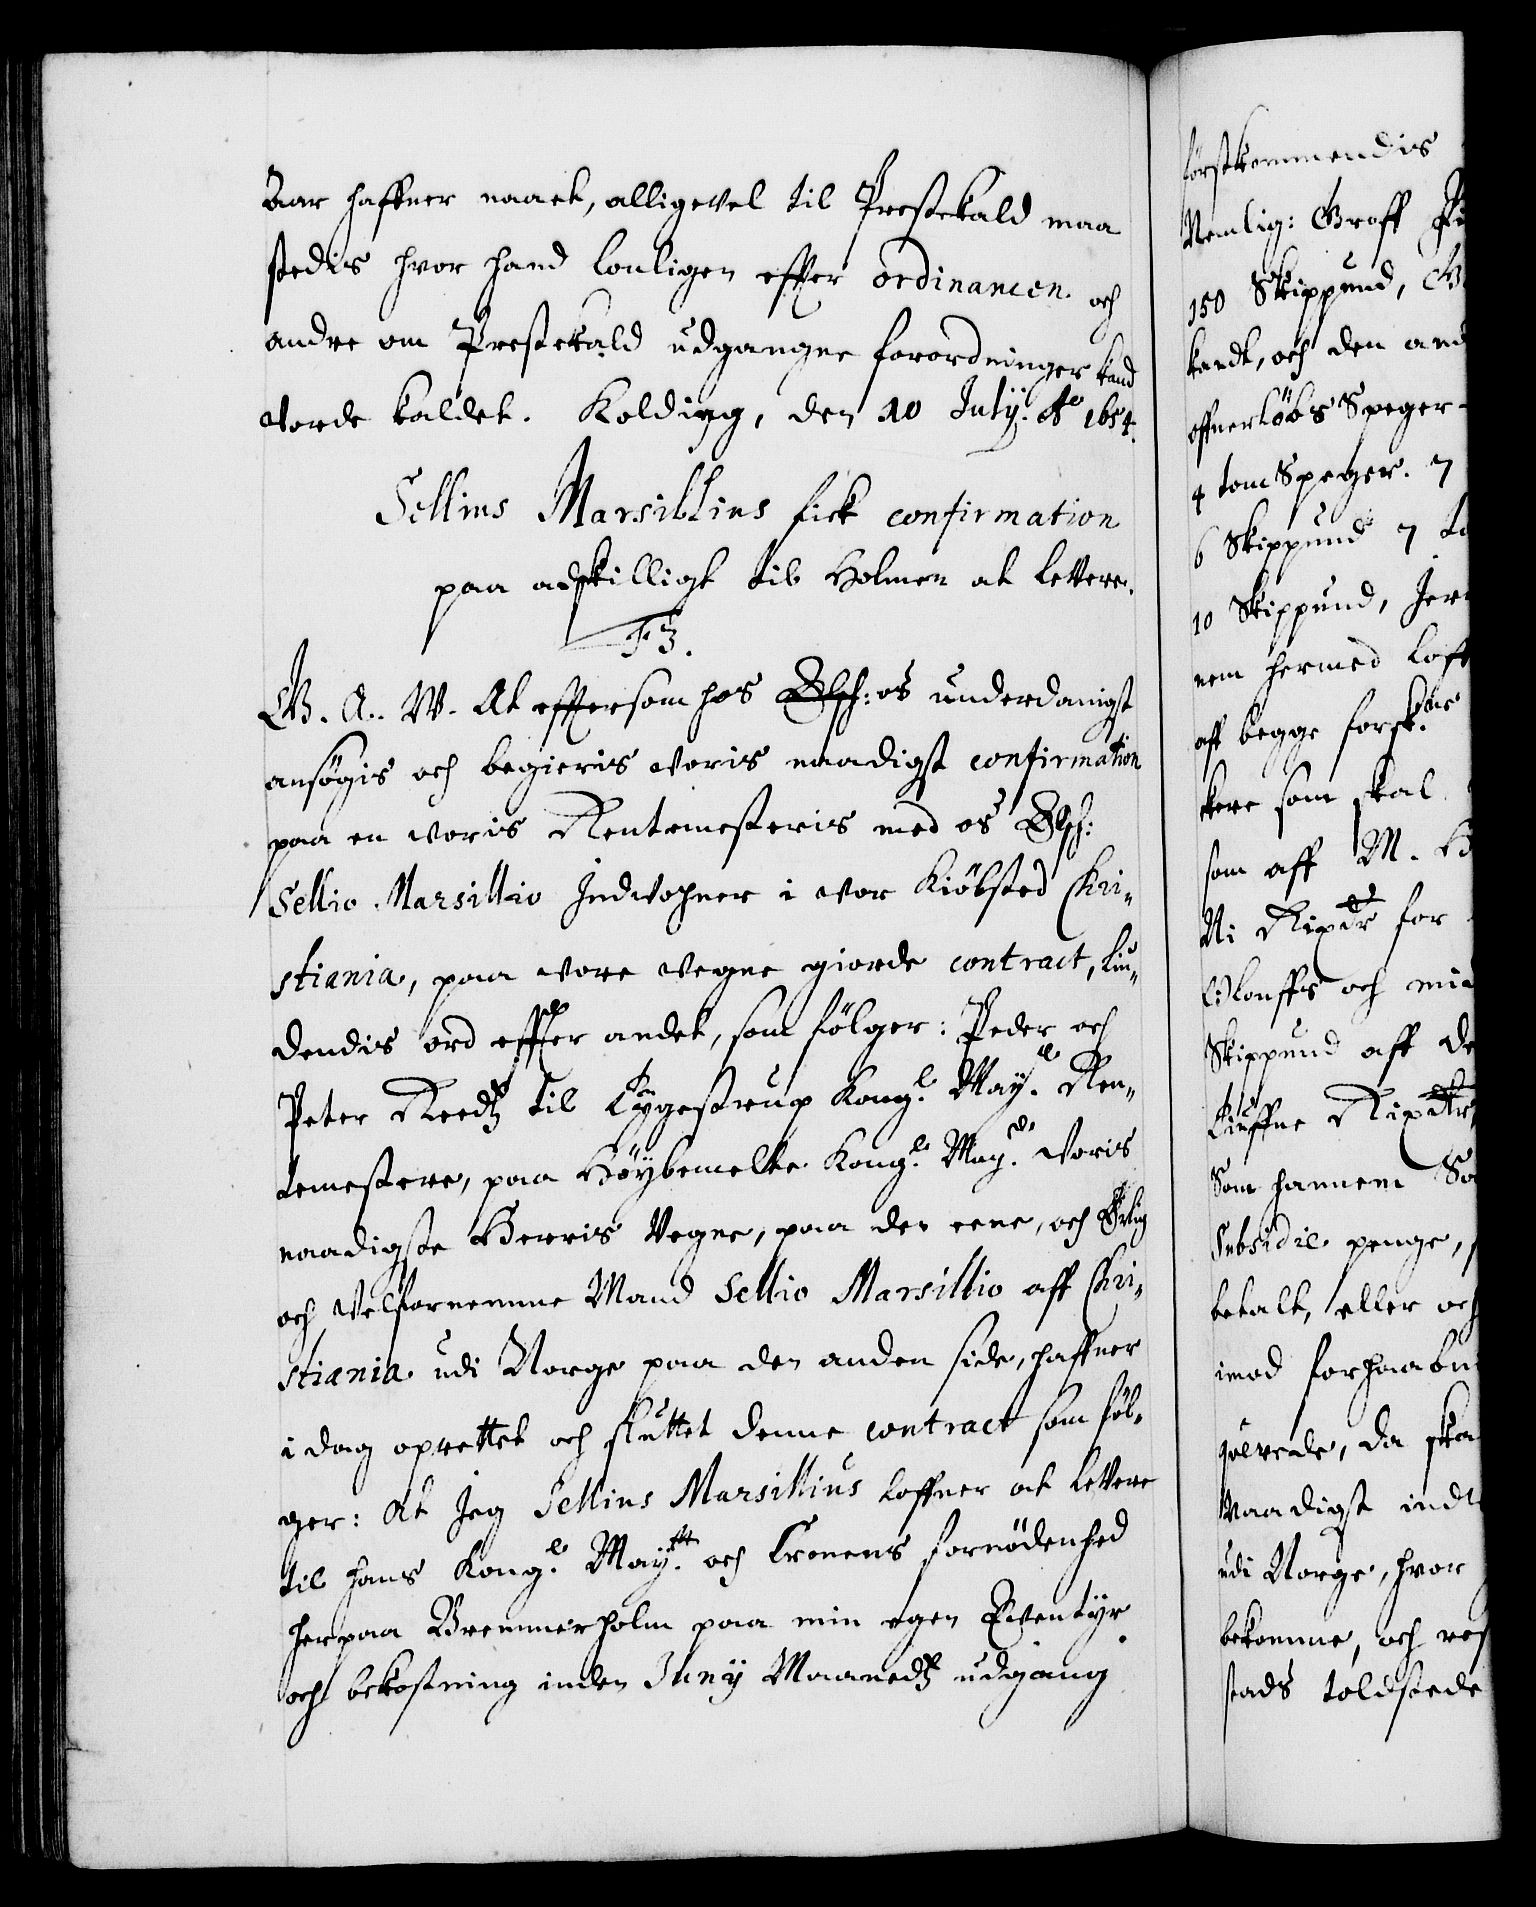 Aar haffuer naaet, alligevel til Prestekald maa
stedis hvor hand louligen effter ordinancen och
andre om Prestekald udgangne forordninger kand
vorde kaldet. Kolding, den 10 July. Ao 1654.
Sellius Marsillius fick confirmation
paa adskilligt til Holmen at levere.
F3.
G. A. W. At effttersom hos os underdanigst
ansøgis och begieris voris naadigst confirmation
paa en voris Rentemesteris med os Elsch:
Sellio Marsillio Indvohner i vor Kiöbsted Chri-
stiania, paa vore vegne giorde contract, liu-
dendis ord effter andet, som fölger: Peder och
Peter Reedtz til Tygestrup Kongl. May. Ren-
temestere, paa Höybemelte Kongl. May. voris
naadigste Herris Vegne, paa den eene, och Erlig
och Velfornemme Mand Sellio Marsillio aff Chri-
stiania udi Norge paa den anden side, haffuer
i dag oprettet och sluttet denne contract som föl-
ger: At Jeg Sellius Marsillius loffuer at levere
til hans Kongl. Maytt. och Cronens fornödenhed
her paa Bremmerholm paa min egen Eventyr
och bekostning inden Juny Maanedtz udgang
förstkommendis
Nemlig: Groff
150 Skippund,
kandt, och den
4 tom Speger. 7
6 Skippund 7
10 Skippund,
nem hermed
aff begge forskne
som skal
som aff M.
for
och
Skippund aff
Som hannem
Subsidie penge,
betalt, eller och
imod
da
Naadigst
udi Norge, hvor
bekomme, och
stads toldstede